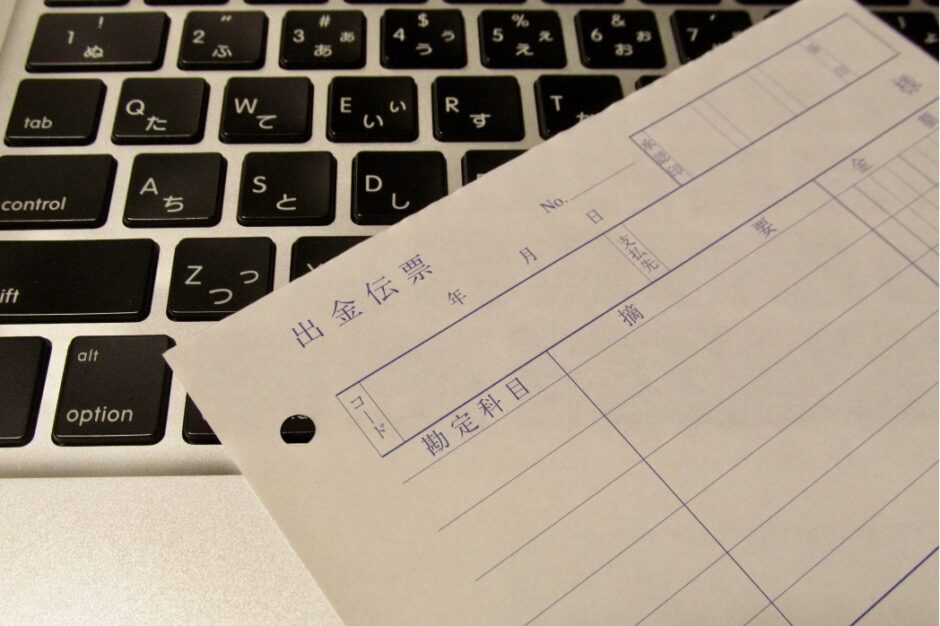 ! " # ぁ $ ぅ % ぇ & ぉ '
1 ぬ 2 ふ 3 あ 4 う 5 え 6 お 7
tab Q た W て E ぃ い R す T
control A ち S と D し
ift Z っ つ
alt
option
承認印
No.
出金伝票
年 月 日
コード 支払先 様
勘定科目 摘要 金